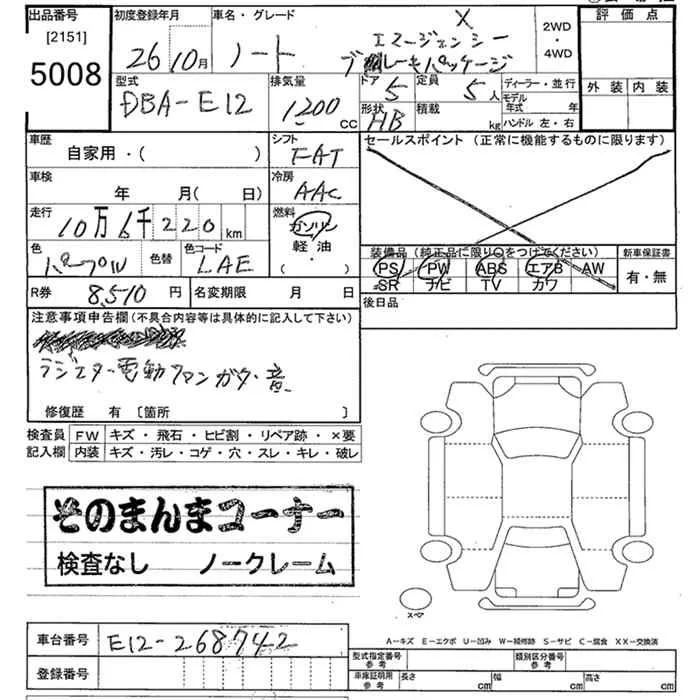 出品番号
[2151]
5008
初度登録年月
26年10月
車名・グレード
ノート
X
エマージェンシー
ブレーキパッケージ
2WD
・
4WD
評価点
外装 内装
型式
DBA-E12
排気量
1200 CC
ドア 5
定員 5 人
ディーラー・並行
形状 HB
積載 kg
モデル年式 年
ハンドル 左・右
車歴
自家用・( )
シフト
FAT
セールスポイント (正常に機能するものに限ります)
車検
年 月( 日)
冷房
AAC
走行
10万6千220km
燃料
ガソリン
軽油
( ・ )
色
パープル
色替
色コード
LAE
装備品 (純正品に限り○をつけてください)
PS PW ABS エアB AW
SR ナビ TV カワ
新車保証書
有・無
R券 8,510 円
名変期限 月 日
後日品
注意事項申告欄(不具合内容等は具体的に記入して下さい)
ラジエター電動ファンガタ・音
修復歴 有 〔箇所 〕
検査員 FW キズ・飛石・ヒビ割・リペア跡・×要
記入欄 内装 キズ・汚レ・コゲ・穴・スレ・キレ・破レ
そのまんまコーナー
検査なし ノークレーム
スペア
A-キズ E-エクボ U-凹み W-補修跡 S-サビ C-腐食 XX-交換済
車台番号 E12-268742
登録番号
型式指定番号
参考
類別区分番号
参考
車庫証明用
参考
長さ cm 幅 cm 高さ cm